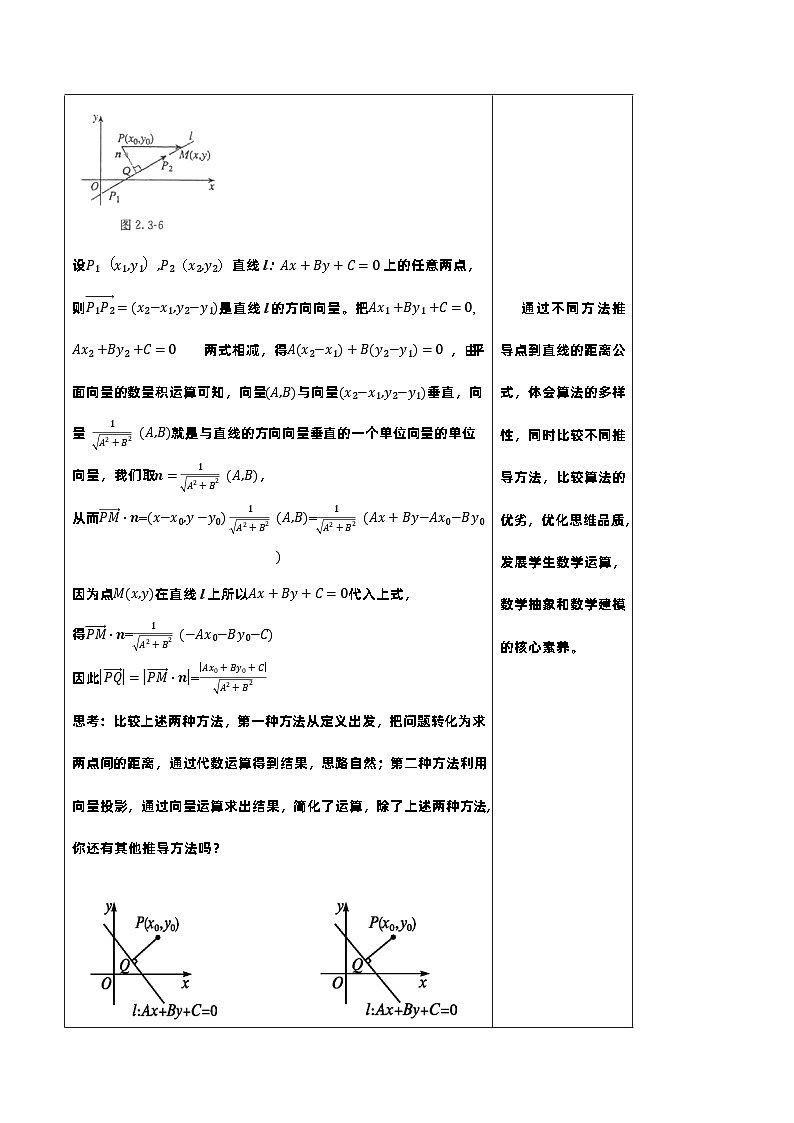 y
P(x₀,y₀)
l
n
M(x,y)
Q
P₂
O
x
P₁
图 2.3-6
设P₁（x₁,y₁）,P₂（x₂,y₂）直线 l：Ax+By+C=0 上的任意两点，
则\overrightarrow{P₁P₂}=(x₂−x₁,y₂−y₁)是直线 l 的方向向量。把Ax₁+By₁+C=0,
Ax₂+By₂+C=0 两式相减，得A(x₂−x₁)+B(y₂−y₁)=0 ，由平
面向量的数量积运算可知，向量(A,B)与向量(x₂−x₁,y₂−y₁)垂直，向
量 \frac{1}{\sqrt{A²+B²}} (A,B)就是与直线的方向向量垂直的一个单位向量的单位
向量，我们取n=\frac{1}{\sqrt{A²+B²}} (A,B)，
从而\overrightarrow{PM}·n=(x−x₀,y−y₀)\frac{1}{\sqrt{A²+B²}} (A,B)=\frac{1}{\sqrt{A²+B²}} (Ax+By−Ax₀−By₀
)
因为点M(x,y)在直线 l 上所以Ax+By+C=0代入上式，
得\overrightarrow{PM}·n=\frac{1}{\sqrt{A²+B²}} (−Ax₀−By₀−C)
因此|\overrightarrow{PQ}|=|\overrightarrow{PM}·n|=\frac{|Ax₀+By₀+C|}{\sqrt{A²+B²}}
思考：比较上述两种方法，第一种方法从定义出发，把问题转化为求
两点间的距离，通过代数运算得到结果，思路自然；第二种方法利用
向量投影，通过向量运算求出结果，简化了运算，除了上述两种方法，
你还有其他推导方法吗？
y
P(x₀,y₀)
Q
O
x
l:Ax+By+C=0
y
P(x₀,y₀)
Q
O
x
l:Ax+By+C=0
通过不同方法推
导点到直线的距离公
式，体会算法的多样
性，同时比较不同推
导方法，比较算法的
优劣，优化思维品质，
发展学生数学运算，
数学抽象和数学建模
的核心素养。